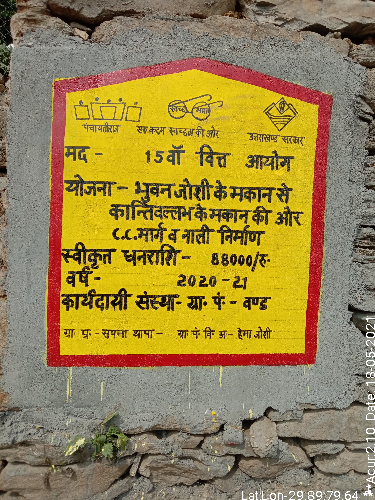 पंचायतीराज
स्वच्छ भारत
एक कदम स्वच्छता की ओर
उत्तराखण्ड सरकार
मद - 15वाँ वित्त आयोग
योजना - भुवन जोशी के मकान से
कान्तिवल्लभ के मकान की ओर
C.C.मार्ग व नाली निर्माण
स्वीकृत धनराशि - 88000/रु.
वर्ष - 2020-21
कार्यदायी संस्था - ग्रा. पं. - वण्ड
ग्रा. प्र. - सपना थापा - ग्रा. पं. वि. अ. - हेमा जोशी
Acur 2.10 Date, 18-05-2021
Lat Lon-29.89:79.64